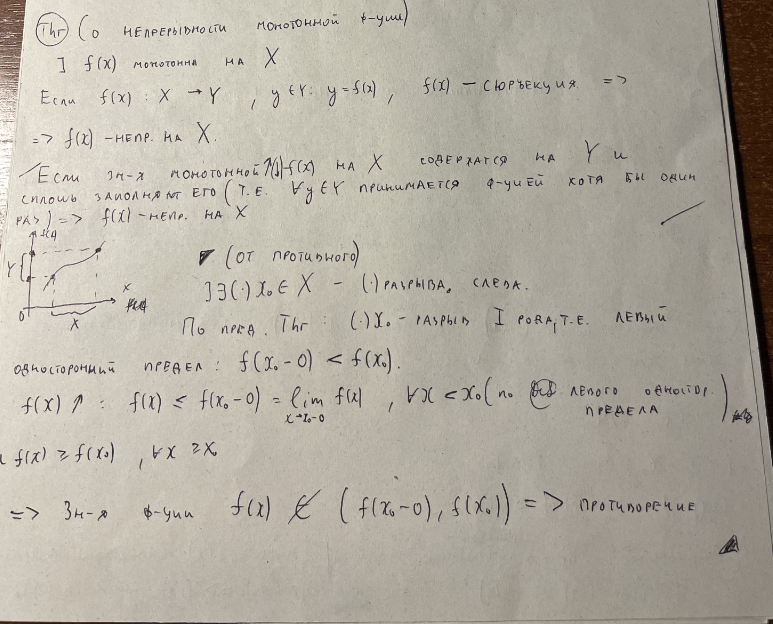 Thr (о непрерывности монотонной ф-уии)
] f(x) монотонна на X
Если f(x) : X → Y , y ∈ Y: y = f(x) , f(x) – сюръекция =>
=> f(x) – непр. на X.
Если зн-я монотонной ↑(↓) f(x) на X содержатся на Y и
сплошь заполняют его (т.е. ∀y ∈ Y принимается ф-уией хотя бы один
раз) => f(x) – непр. на X
f(x)
Y
0
X
x
(от противного)
] ∃ (·) x₀ ∈ X – (·) разрыва, слева.
По пред. Thr : (·) x₀ – разрыв I рода, т.е. левый
односторонний предел : f(x₀-0) < f(x₀).
f(x) ↑ : f(x) ≤ f(x₀-0) = lim f(x) , ∀x < x₀ (по левого одностор.
x→x₀-0
предела)
f(x) ≥ f(x₀) , ∀x ≥ x₀
=> Зн-я ф-уии f(x) ∉ (f(x₀-0), f(x₀)) => противорение